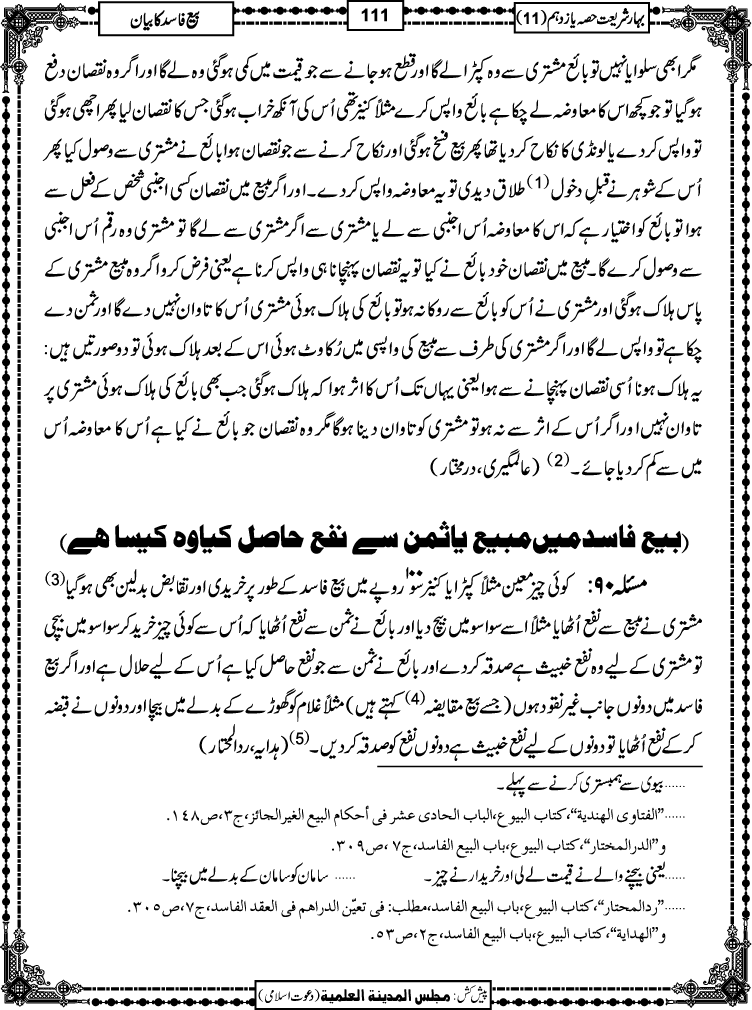 بہارِ شریعت حصہ یازدہم (11)
111
بیع فاسد کا بیان
مگر ابھی سلوایا نہیں تو بائع مشتری سے وہ کپڑا لے گا اور قطع ہو جانے سے جو قیمت میں کمی ہوگئی وہ لے گا اور اگر وہ نقصان دفع
ہوگیا تو جو کچھ اس کا معاوضہ لے چکا ہے بائع واپس کرے مثلاً کنیز تھی اُس کی آنکھ خراب ہوگئی جس کا نقصان لیا پھر اچھی ہوگئی
تو واپس کردے یا لونڈی کا نکاح کردیا تھا پھر بیع فسخ ہوگئی اور نکاح کرنے سے جو نقصان ہوا بائع نے مشتری سے وصول کیا پھر
اُس کے شوہر نے قبلِ دخول (1) طلاق دیدی تو یہ معاوضہ واپس کردے۔ اور اگر مبیع میں نقصان کسی اجنبی شخص کے فعل سے
ہوا تو بائع کو اختیار ہے کہ اس کا معاوضہ اُس اجنبی سے لے یا مشتری سے اگر مشتری سے لے گا تو مشتری وہ رقم اُس اجنبی
سے وصول کرے گا۔ مبیع میں نقصان خود بائع نے کیا تو یہ نقصان پہنچانا ہی واپس کرنا ہے یعنی فرض کرو اگر وہ مبیع مشتری کے
پاس ہلاک ہوگئی اور مشتری نے اُس کو بائع سے روکا نہ ہو تو بائع کی ہلاک ہوئی مشتری اُس کا تاوان نہیں دے گا اور ثمن دے
چکا ہے تو واپس لے گا اور اگر مشتری کی طرف سے مبیع کی واپسی میں رُکاوٹ ہوئی اس کے بعد ہلاک ہوئی تو دو صورتیں ہیں:
یہ ہلاک ہونا اُسی نقصان پہنچانے سے ہوا یعنی یہاں تک اُس کا اثر ہوا کہ ہلاک ہوگئی جب بھی بائع کی ہلاک ہوئی مشتری پر
تاوان نہیں اور اگر اُس کے اثر سے نہ ہو تو مشتری کو تاوان دینا ہوگا مگر وہ نقصان جو بائع نے کیا ہے اُس کا معاوضہ اُس
میں سے کم کردیا جائے۔ (2) (عالمگیری، درمختار)
(بیع فاسد میں مبیع یا ثمن سے نفع حاصل کیا وہ کیسا ہے)
مسئلہ ۹۰: کوئی چیز معین مثلاً کپڑا یا کنیز سو ۱۰۰ روپے میں بیع فاسد کے طور پر خریدی اور تقابض بدلین بھی ہوگیا (3)
مشتری نے مبیع سے نفع اُٹھایا مثلاً اسے سوا سو میں بیچ دیا اور بائع نے ثمن سے نفع اُٹھایا کہ اُس سے کوئی چیز خرید کر سوا سو میں بیچی
تو مشتری کے لیے وہ نفع خبیث ہے صدقہ کردے اور بائع نے ثمن سے جو نفع حاصل کیا ہے اُس کے لیے حلال ہے اور اگر بیع
فاسد میں دونوں جانب غیر نقود ہوں (جسے بیع مقایضہ (4) کہتے ہیں) مثلاً غلام کو گھوڑے کے بدلے میں بیچا اور دونوں نے قبضہ
کرکے نفع اُٹھایا تو دونوں کے لیے نفع خبیث ہے دونوں نفع کو صدقہ کردیں۔ (5) (ہدایہ، ردالمحتار)
......بیوی سے ہمبستری کرنے سے پہلے۔
......"الفتاوی الھندیة"، کتاب البیوع، الباب الحادی عشر فی أحکام البیع الغیر الجائز، ج۳، ص۱٤۸.
و"الدرالمختار"، کتاب البیوع، باب البیع الفاسد، ج۷، ص۳۰۹.
......یعنی بیچنے والے نے قیمت لے لی اور خریدار نے چیز۔ ......سامان کو سامان کے بدلے میں بیچنا۔
......"ردالمحتار"، کتاب البیوع، باب البیع الفاسد، مطلب: فی تعیّن الدراھم فی العقد الفاسد، ج۷، ص۳۰۵.
و"الھدایة"، کتاب البیوع، باب البیع الفاسد، ج۲، ص۵۳.
پیش کش: مجلس المدینة العلمیة (دعوت اسلامی)